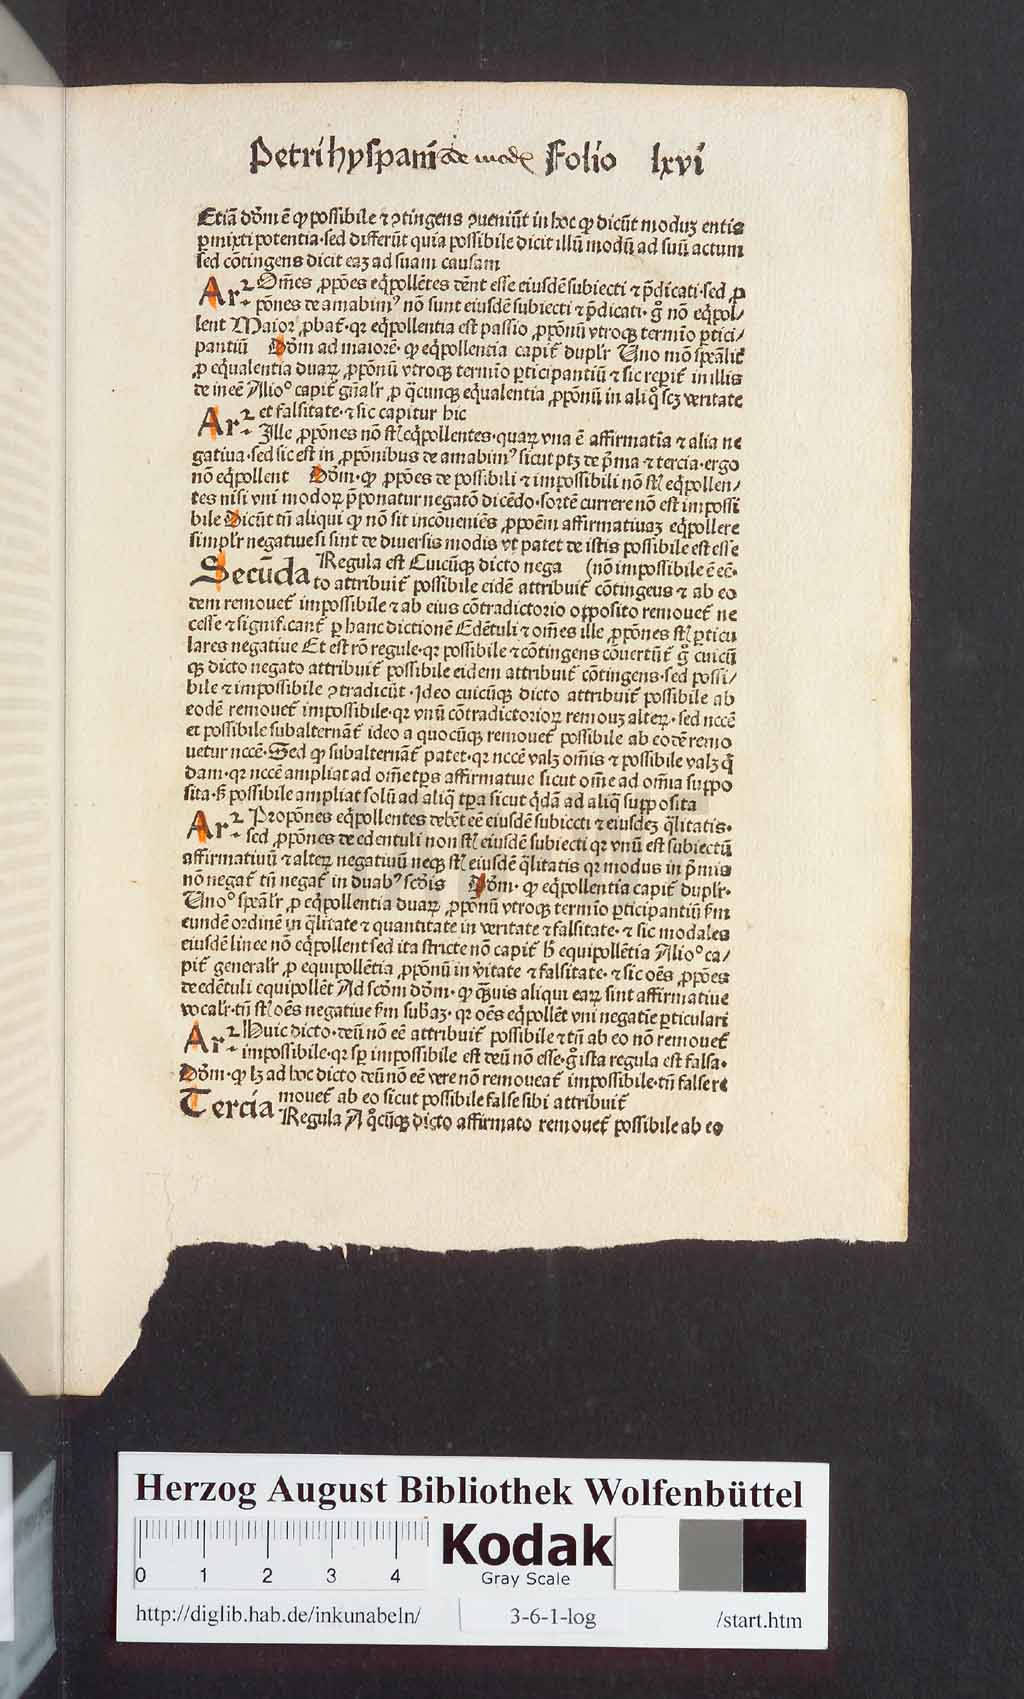 Petri hyspani de mod Folio lxvi
Etiā dōm ē ꝙ possibile ⁊ ꝯtingens ꝯueniūt in hoc ꝙ dicūt moduꝫ entis
ꝑmixti potentia·sed differūt quia possibile dicit illū modū ad suū actum
sed cōtingens dicit eaꝫ ad suam causam
Ar² Om̄es ꝓpōes eq̄pollētes dēnt esse eiusdē subiecti ⁊ p̄dicati·sed ꝓ
pōnes de amabimꝰ nō sunt eiusdē subiecti ⁊ p̄dicati·g̊ nō eq̄pol/
lent Maior ꝓbat̄·qꝛ eq̄pollentia est passio ꝓpōnū vtroqꝫ termīo ꝑtici-
pantiū Dōm ad maiorē·ꝙ eq̄pollencia capit̄ duplr̄ Uno mō spēalit̄
ꝓ eq̄ualentia duaꝝ ꝓpōnū vtroqꝫ termīo ꝑticipantiū ⁊ sic reꝑit̄ in illis
de ineē Alio° capit̄ gn̄alr̄ ꝓ q̄cunqꝫ eq̄ualentia ꝓpōnū in aliq̊ scꝫ veritate
Ar² et falsitate·⁊ sic capitur hic
Ille ꝓpōnes nō sūt eq̄pollentes·quaꝝ vna ē affirmatīa ⁊ alia ne
gatiua·sed sic est in ꝓpōnibus de amabimꝰ sicut ptꝫ de p̄ma ⁊ tercia·ergo
nō eq̄pollent Dōm·ꝙ ꝓpōes de possibili ⁊ impossibili nō sūt eq̄pollen/
tes nisi vni modoꝝ p̄ponatur negatō dicēdo·sortē currere nō est impossi
bile Dicūt tn̄ aliqui ꝙ nō sit incōueniēs ꝓpoēm affirmatiuaꝫ eq̄pollere
simplr̄ negatiue si sint de diuersis modis vt patet de istis possibile est esse
Secūda Regula est Cuicūqꝫ dicto nega (nō impossibile ē eē·
to attribuit̄ possibile eidē attribuit̄ cōtingens ⁊ ab eo
dem remouet̄ impossibile ⁊ ab eius cōtradictorio opposito remouet̄ ne
cesse ⁊ significant̄ ꝑ hanc dictionē Edētuli ⁊ om̄es ille ꝓpōnes sūt ꝑticu
lares negatiue Et est rō regule·qꝛ possibile ⁊ cōtingens cōuertūt̄ g̊ cuicū
qꝫ dicto negato attribuit̄ possibile eidem attribuit̄ cōtingens·sed possi/
bile ⁊ impossibile ꝯtradicūt·Ideo cuicūqꝫ dicto attribuit̄ possibile ab
eodē remouet̄ impossibile·qꝛ vnū cōtradictorioꝝ remouꝫ alteꝝ·sed nccē
et possibile subalternāt̄ ideo a quocūqꝫ remouet̄ possibile ab eodē remo
uetur nccē·Sed ꝙ subalternāt̄ patet·qꝛ nccē valꝫ om̄is ⁊ possibile valꝫ q̄
dam·qꝛ nccē ampliat ad om̄e tp̄s affirmatuie sicut om̄e ad om̄ia suppo
sita·ß possibile ampliat solū ad aliq̄ tp̄a sicut q̄dā ad aliq̄ supposita
Ar² Propōnes eq̄pollentes debēt eē eiusdē subiecti ⁊ eiusdeꝫ q̄litatis·
sed ꝓpōnes de edentuli non sūt eiusdē subiecti qꝛ vnū est subiectū
affirmatiuū ⁊ alteꝝ negatiuū neqꝫ sūt eiusdē q̄litatis qꝛ modus in p̄mis
nō negat̄ tn̄ negat̄ in duabꝰ scd̄is Dōm·ꝙ eq̄pollentia capit̄ duplr̄·
Uno° spēalr̄ ꝓ eq̄pollentia duaꝝ ꝓpōnū vtroqꝫ termīo ꝑticipantiū ẜm
eundē ordinē in q̄litate ⁊ quantitate in veritate ⁊ falsitate·⁊ sic modales
eiusdē linee nō eq̄pollent sed ita stricte nō capit̄ h̄ equipollētia Alio° ca/
pit̄ generalr̄ ꝓ equipollētia ꝓpōnū in v̄itate ⁊ falsitate·⁊ sic oēs ꝓpōes
de edētuli equipollēt Ad scd̄m dōm·ꝙ q̄uis aliqui eaꝝ sint affirmatiue
vocalr̄·tn̄ sūt oēs negatiue ẜm sub̄aꝫ·qꝛ oēs eq̄pollēt vni negatīe ꝑticulari
Ar² Huic dicto·deū nō eē attribuit̄ possibile ⁊ tn̄ ab eo nō remouet̄
impossibile·qꝛ sꝑ impossibile est deū nō esse·g̊ ista regula est falsa·
Dōm·ꝙ lꝫ ad hoc dicto deū nō eē vere nō remoueat̄ impossibile·tn̄ false re
mouet̄ ab eo sicut possibile false sibi attribuit̄
Tercia Regula A q̊cūqꝫ dicto affirmato remouet̄ possibile ab eo
Herzog August Bibliothek Wolfenbüttel
0 1 2 3 4
Kodak
Gray Scale
http://diglib.hab.de/inkunabeln/ 3-6-1-log /start.htm